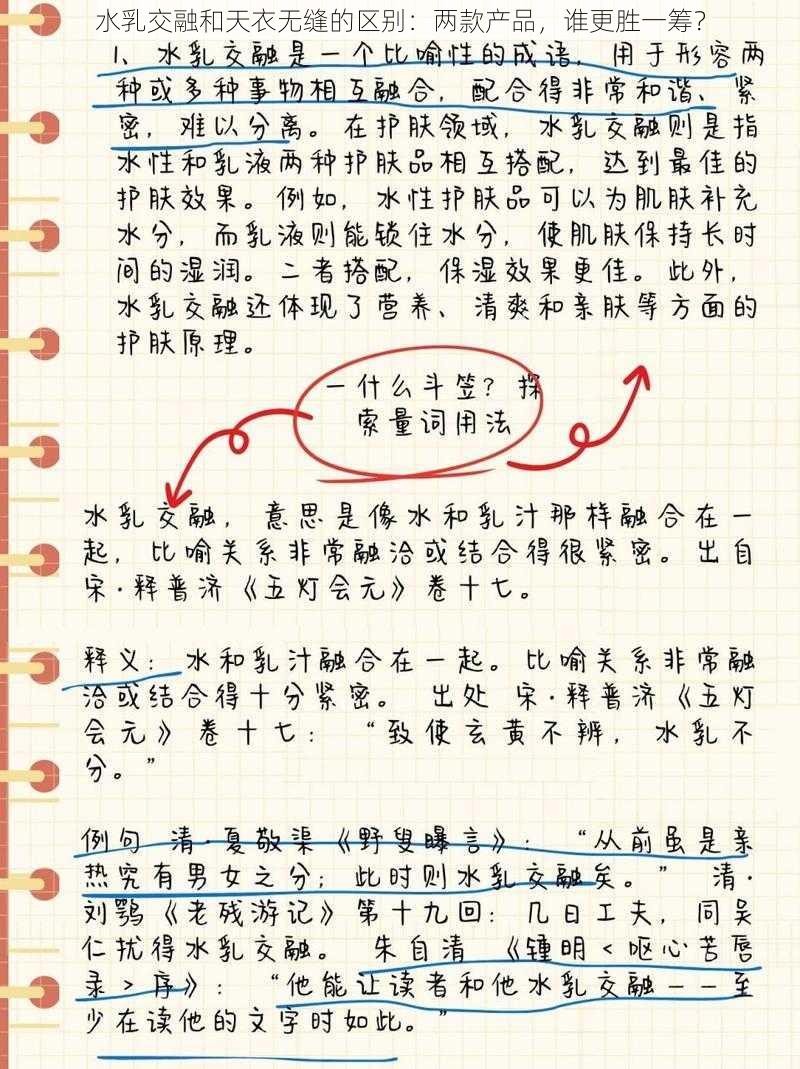 水乳交融和天衣无缝的区别：两款产品，谁更胜一筹？
1、水乳交融是一个比喻性的成语，用于形容两
种或多种事物相互融合，配合得非常和谐、紧
密，难以分离。在护肤领域，水乳交融则是指
水性和乳液两种护肤品相互搭配，达到最佳的
护肤效果。例如，水性护肤品可以为肌肤补充
水分，而乳液则能锁住水分，使肌肤保持长时
间的湿润。二者搭配，保湿效果更佳。此外，
水乳交融还体现了营养、清爽和亲肤等方面的
护肤原理。
一什么斗笠？探
索量词用法
水乳交融，意思是像水和乳汁那样融合在一
起，比喻关系非常融洽或结合得很紧密。出自
宋·释普济《五灯会元》卷十七。
释义：水和乳汁融合在一起。比喻关系非常融
洽或结合得十分紧密。 出处 宋·释普济《五灯
会元》卷十七：“致使玄黄不辨，水乳不
分。”
例句 清·夏敬渠《野叟曝言》：“从前虽是亲
热究有男女之分；此时则水乳交融矣。” 清·
刘鹗《老残游记》第十九回：几日工夫，同吴
仁扰得水乳交融。 朱自清 《锺明<呕心苦唇
录>序》：“他能让读者和他水乳交融——至
少在读他的文字时如此。”